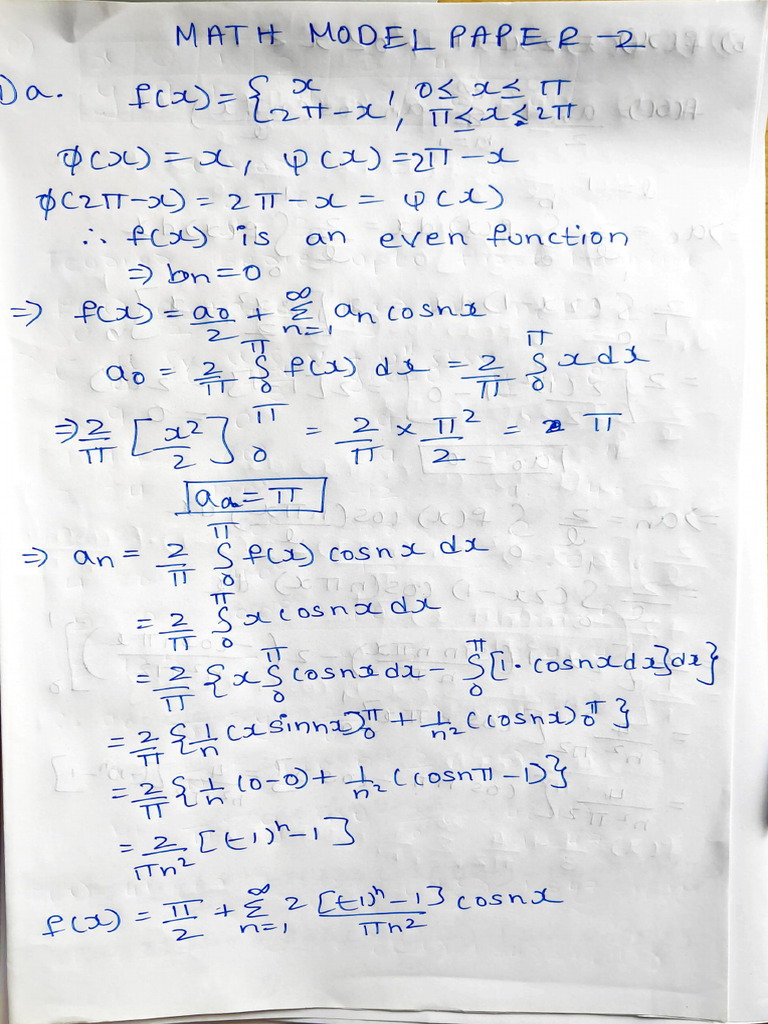 MATH MODEL PAPER-2
1) a. f(x) = { x , 0 ≤ x ≤ π
{ 2π-x , π ≤ x ≤ 2π
φ(x) = x, ψ(x) = 2π-x
φ(2π-x) = 2π-x = ψ(x)
∴ f(x) is an even function
⇒ bn = 0
⇒ f(x) = a0/2 + Σ_{n=1}^{∞} an cosnx
a0 = 2/π ∫_0^π f(x) dx = 2/π ∫_0^π x dx
⇒ 2/π [x²/2]_0^π = 2/π × π²/2 = π
a0 = π
⇒ an = 2/π ∫_0^π f(x) cosnx dx
= 2/π ∫_0^π x cosnx dx
= 2/π { x ∫_0^π cosnx dx - ∫_0^π [1·cosnx dx] dx }
= 2/π { 1/n (x sinnx)_0^π + 1/n² (cosnx)_0^π }
= 2/π { 1/n (0-0) + 1/n² (cosnπ - 1) }
= 2/πn² [(-1)^n - 1]
f(x) = π/2 + Σ_{n=1}^{∞} 2 [(-1)^n - 1]/πn² cosnx